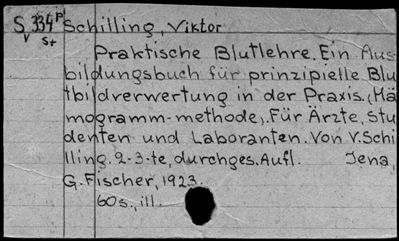 S 334P Schilling, Viktor
v St
Praktische Blutlehre. Ein Aus-
bildungsbuch für prinzipielle Blu
tbildverwertung in der Praxis. (Hä
mogramm-methode). Für Ärzte, Stu
denten und Laboranten. Von V. Schi
lling. 2-3-te, durchges. Aufl. Jena,
G. Fischer, 1923.
60s., ill.